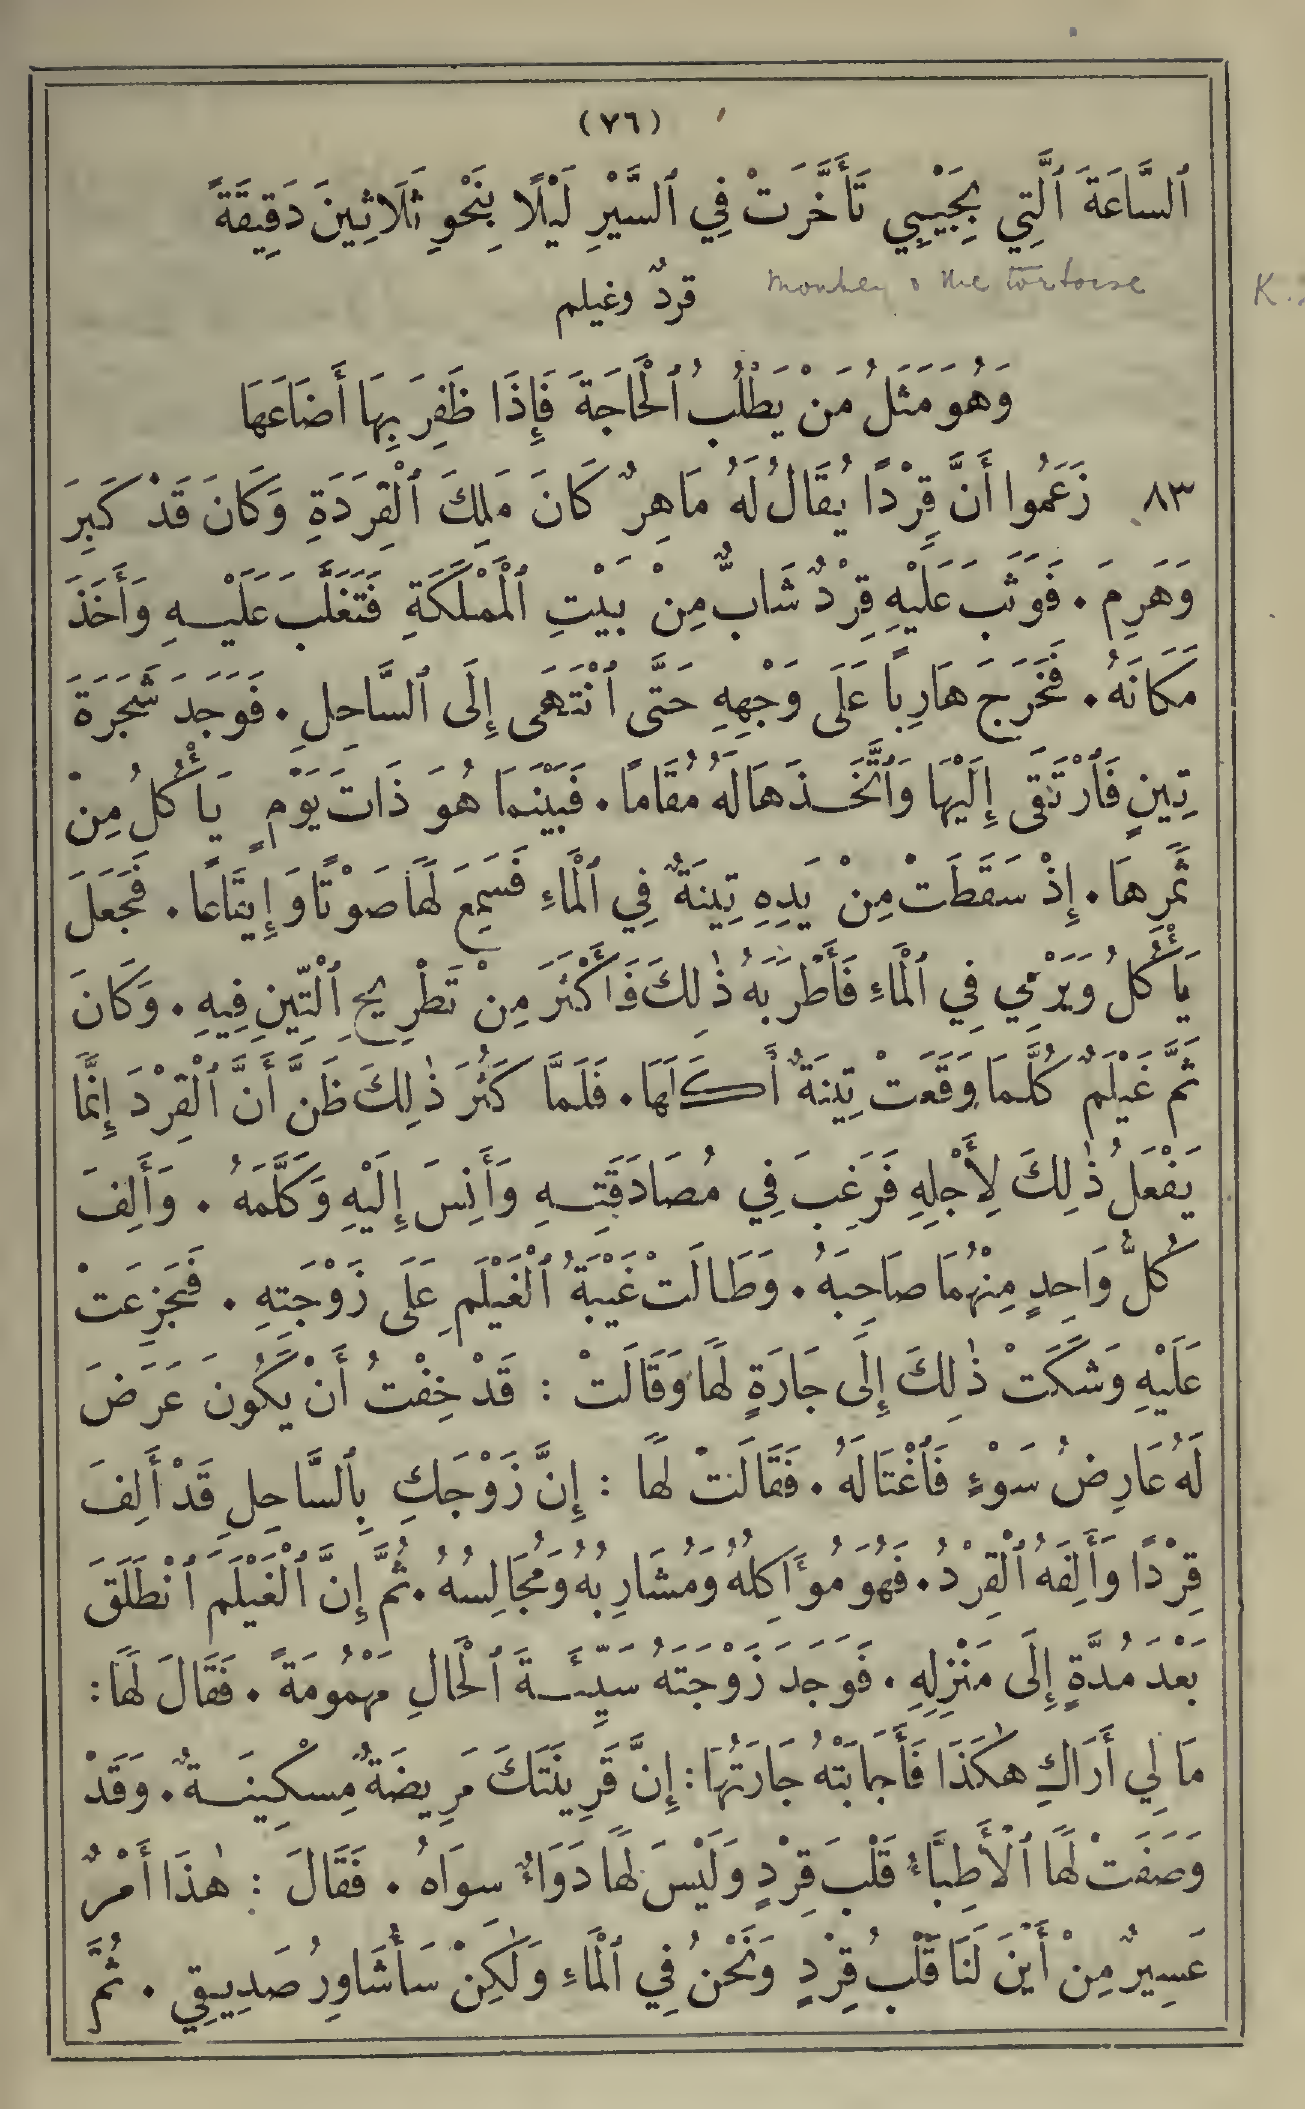 (٧٦)
ٱلسَّاعَةَ ٱلَّتِي بِجَيْبِي تَأَخَّرَتْ فِي ٱلسَّيْرِ لَيْلًا بِنَحْوِ ثَلَاثِينَ دَقِيقَةً
قردٌ وغيلم Monkey & the tortoise
K.
وَهُوَ مَثَلُ مَنْ يَطْلُبُ ٱلْحَاجَةَ فَإِذَا ظَفِرَ بِهَا أَضَاعَهَا
٨٣ زَعَمُوا أَنَّ قِرْدًا يُقَالُ لَهُ مَاهِرٌ كَانَ مَلِكَ ٱلْقِرَدَةِ وَكَانَ قَدْ كَبِرَ
وَهَرِمَ. فَوَثَبَ عَلَيْهِ قِرْدٌ شَابٌّ مِنْ بَيْتِ ٱلْمَمْلَكَةِ فَتَغَلَّبَ عَلَيْهِ وَأَخَذَ
مَكَانَهُ. فَخَرَجَ هَارِبًا عَلَى وَجْهِهِ حَتَّى ٱنْتَهَى إِلَى ٱلسَّاحِلِ. فَوَجَدَ شَجَرَةَ
تِينٍ فَٱرْتَقَى إِلَيْهَا وَٱتَّخَذَهَا لَهُ مُقَامًا. فَبَيْنَمَا هُوَ ذَاتَ يَوْمٍ يَأْكُلُ مِنْ
ثَمَرِهَا. إِذْ سَقَطَتْ مِنْ يَدِهِ تِينَةٌ فِي ٱلْمَاءِ فَسَمِعَ لَهَا صَوْتًا وَإِيقَاعًا. فَجَعَلَ
يَأْكُلُ وَيَرْمِي فِي ٱلْمَاءِ فَأَطْرَبَهُ ذٰلِكَ فَأَكْثَرَ مِنْ تَطْرِيحِ ٱلتِّينِ فِيهِ. وَكَانَ
ثَمَّ غَيْلَمٌ كُلَّمَا وَقَعَتْ تِينَةٌ أَكَلَهَا. فَلَمَّا كَثُرَ ذٰلِكَ ظَنَّ أَنَّ ٱلْقِرْدَ إِنَّمَا
يَفْعَلُ ذٰلِكَ لِأَجْلِهِ فَرَغِبَ فِي مُصَادَقَتِهِ وَأَنِسَ إِلَيْهِ وَكَلَّمَهُ. وَأَلِفَ
كُلُّ وَاحِدٍ مِنْهُمَا صَاحِبَهُ. وَطَالَتْ غَيْبَةُ ٱلْغَيْلَمِ عَلَى زَوْجَتِهِ. فَجَزِعَتْ
عَلَيْهِ وَشَكَتْ ذٰلِكَ إِلَى جَارَةٍ لَهَا وَقَالَتْ : قَدْ خِفْتُ أَنْ يَكُونَ عَرَضَ
لَهُ عَارِضُ سَوْءٍ فَٱغْتَالَهُ. فَقَالَتْ لَهَا : إِنَّ زَوْجَكِ بِٱلسَّاحِلِ قَدْ أَلِفَ
قِرْدًا وَأَلِفَهُ ٱلْقِرْدُ. فَهُوَ مُؤَاكِلُهُ وَمُشَارِبُهُ وَمُجَالِسُهُ. ثُمَّ إِنَّ ٱلْغَيْلَمَ ٱنْطَلَقَ
بَعْدَ مُدَّةٍ إِلَى مَنْزِلِهِ. فَوَجَدَ زَوْجَتَهُ سَيِّئَةَ ٱلْحَالِ مَهْمُومَةً. فَقَالَ لَهَا:
مَا لِي أَرَاكِ هٰكَذَا فَأَجَابَتْهُ جَارَتُهَا: إِنَّ قَرِينَتَكَ مَرِيضَةٌ مِسْكِينَةٌ. وَقَدْ
وَصَفَتْ لَهَا ٱلْأَطِبَّاءُ قَلْبَ قِرْدٍ وَلَيْسَ لَهَا دَوَاءٌ سِوَاهُ. فَقَالَ : هٰذَا أَمْرٌ
عَسِيرٌ مِنْ أَيْنَ لَنَا قَلْبُ قِرْدٍ وَنَحْنُ فِي ٱلْمَاءِ وَلٰكِنْ سَأُشَاوِرُ صَدِيقِي. ثُمَّ